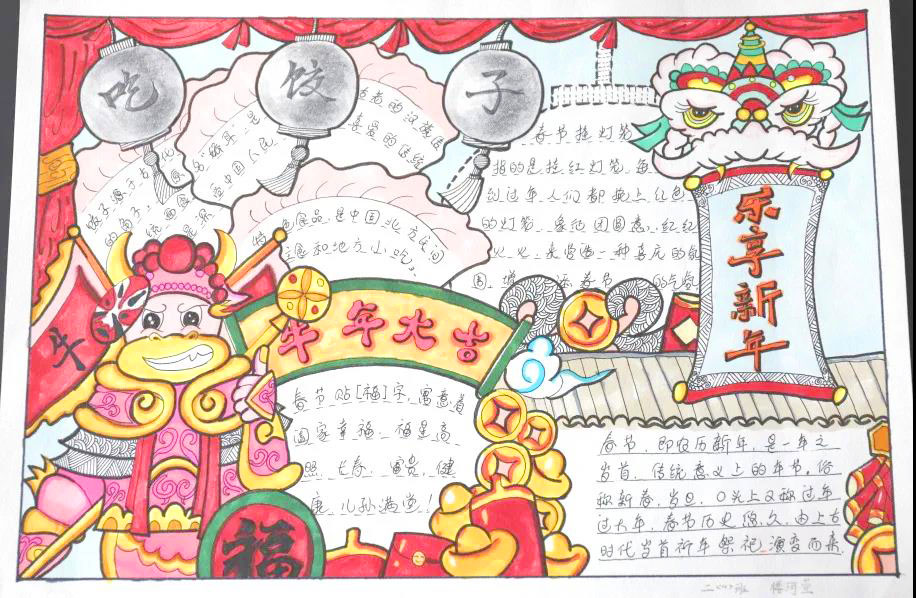 吃饺子
古老的汉族传
喜爱的传统
饺子源于古
的角子
是深受中国人民
特色食品,是中国北方民间
主食和地方小吃。
春节挂灯笼
指的是挂红灯笼,每
到过年,人们都挂上红色
的灯笼,象征团圆意,红红
火火,来营造一种喜庆的氛
围
春节
乐享新年
牛年大吉
牛
春节贴[福]字,寓意着
国家幸福、福星高
照、长寿、富贵、健
康、儿孙满堂!
福
春节,即农历新年,是一年之
岁首,传统意义上的年节。俗
称新春、岁旦、口头上又称过年
过大年,春节历史悠久,由上古
时代岁首祈年祭祀演变而来.